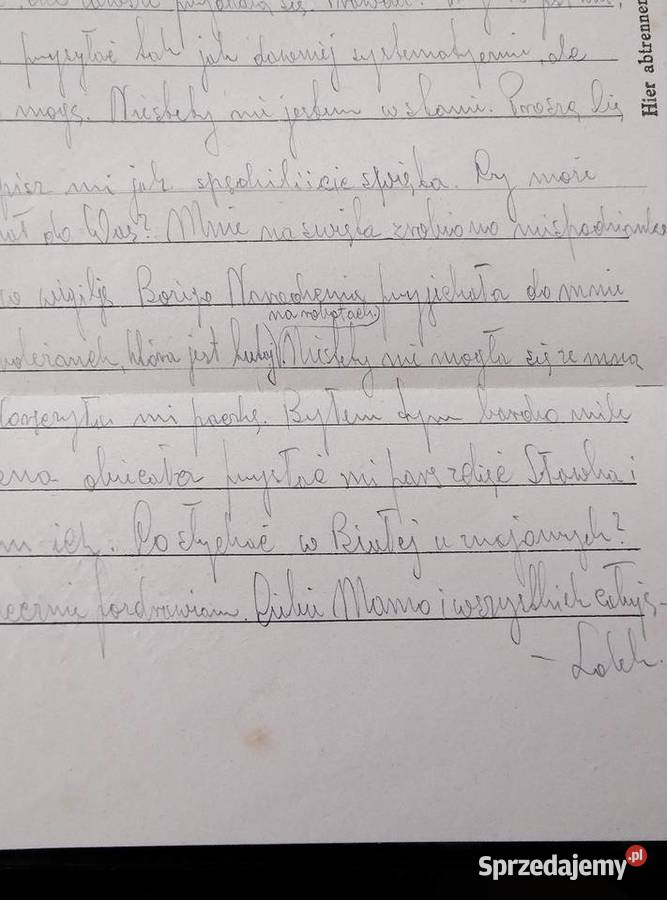 przysyłać tak jak dawniej systematycznie, ale
mogę. Niestety nie jestem w stanie. Proszę Cię
pisz mi jak spędziliście święta. Czy może
do Was? Mnie na święta zrobiono niespodziankę
wigilję Bożego Narodzenia przyjechała do mnie
na robotach
która jest tutaj). Niestety nie mogła się ze mną
mi paczkę. Byłem tym bardzo mile
obiecała przysłać mi parę zdjęć Sławka i
ich. Co słychać w Białej u znajomych?
pozdrawiam. Ciebie Mamo i wszystkich całuję –
– Lolek.
Hier abtrennen
Sprzedajemy.pl